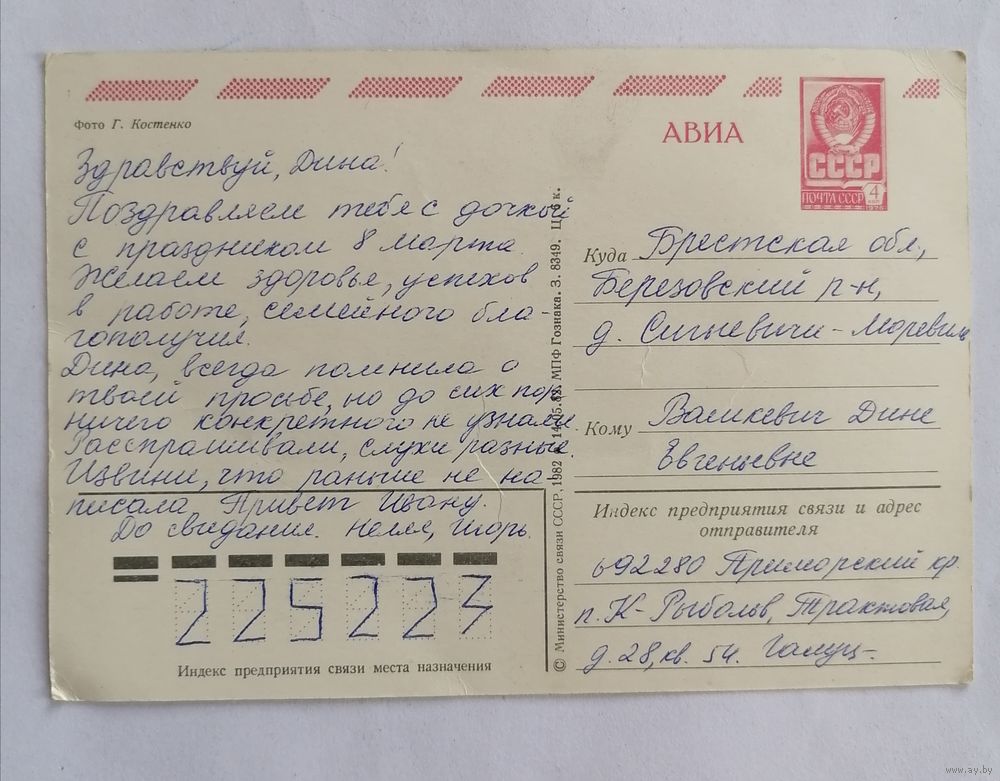 Фото Г. Костенко
АВИА
СССР
ПОЧТА СССР
4
КОП
Здравствуй, Дина!
Поздравляем тебя с дочкой
с праздником 8 марта.
Желаем здоровья, успехов
в работе, семейного бла-
гополучия.
Дина, всегда помнила о
твоей просьбе, но до сих пор
ничего конкретного не узнали.
Расспрашивали, слухи разные.
Извини, что раньше не на-
писала. Привет Ивану.
До свидания. Нелля, Игорь.
225223
Индекс предприятия связи места назначения
© Министерство связи СССР. 1982 14.05.82. МПФ Гознака. З. 8349. Ц. 6 к.
Куда Брестская обл.,
Березовский р-н,
д. Сигневичи-
Кому Валикевич Дине
Евгеньевне
Индекс предприятия связи и адрес
отправителя
692280 Приморский кр.
п. К-Рыболов, Трактовая,
д. 28, кв. 54.
www.ay.by